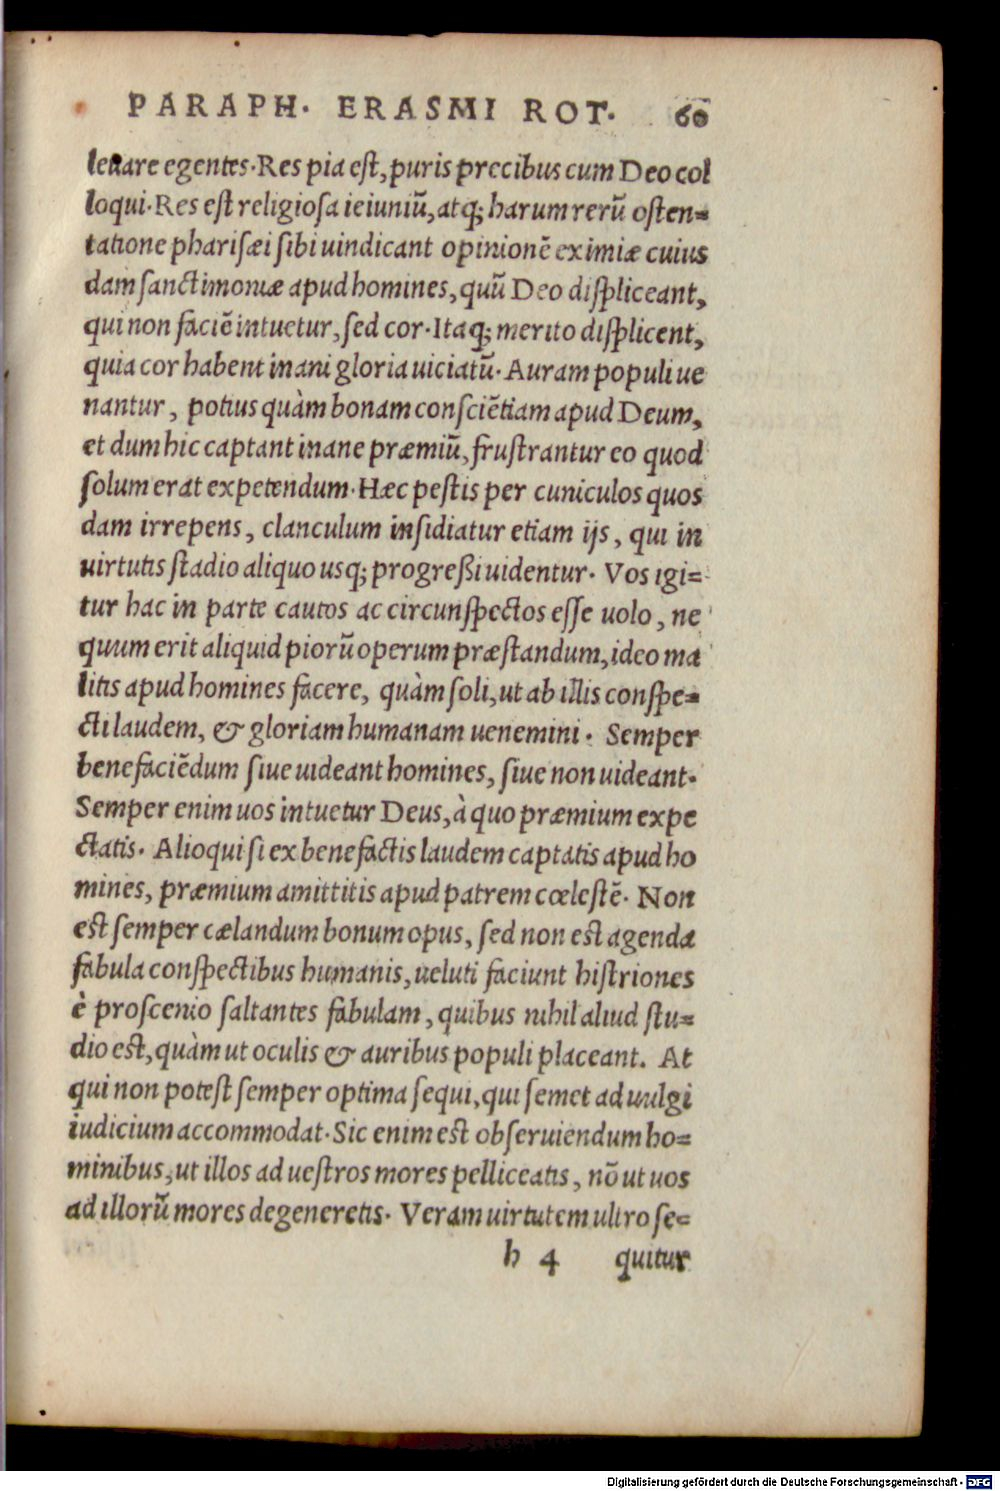 PARAPH. ERASMI ROT. 60
leuare egentes. Res pia est, puris precibus cum Deo col
loqui. Res est religiosa ieiuniũ, atq; harum rerũ osten=
tatione pharisæi sibi uindicant opinionẽ eximiæ cuius
dam sanctimoniæ apud homines, quũ Deo displiceant,
qui non faciẽ intuetur, sed cor. Itaq; merito displicent,
quia cor habent inani gloria uiciatũ. Auram populi ue
nantur, potius quàm bonam consciẽtiam apud Deum,
et dum hic captant inane præmiũ, frustrantur eo quod
solum erat expetendum. Hæc pestis per cuniculos quos
dam irrepens, clanculum insidiatur etiam ijs, qui in
uirtutis stadio aliquo usq; progreßi uidentur. Vos igi=
tur hac in parte cautos ac circunspectos esse uolo, ne
quum erit aliquid piorũ operum præstandum, ideo ma
litis apud homines facere, quàm soli, ut ab illis conspe=
cti laudem, & gloriam humanam uenemini. Semper
benefaciẽdum siue uideant homines, siue non uideant.
Semper enim uos intuetur Deus, à quo præmium expe
ctatis. Alioqui si ex benefactis laudem captatis apud ho
mines, præmium amittitis apud patrem cœlestẽ. Non
est semper cælandum bonum opus, sed non est agenda
fabula conspectibus humanis, ueluti faciunt histriones
è proscenio saltantes fabulam, quibus nihil aliud stu=
dio est, quàm ut oculis & auribus populi placeant. At
qui non potest semper optima sequi, qui semet ad uulgi
iudicium accommodat. Sic enim est obseruiendum ho=
minibus, ut illos ad uestros mores pelliceatis, nõ ut uos
ad illorũ mores degeneretis. Veram uirtutem ultro se=
h 4 quitur
Digitalisierung gefördert durch die Deutsche Forschungsgemeinschaft - DFG